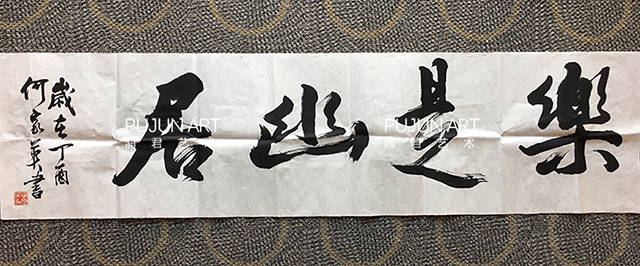 樂是幽居
歲在丁酉
何家英書
PUJUN ART
君艺术
PUJUN ART
君艺术